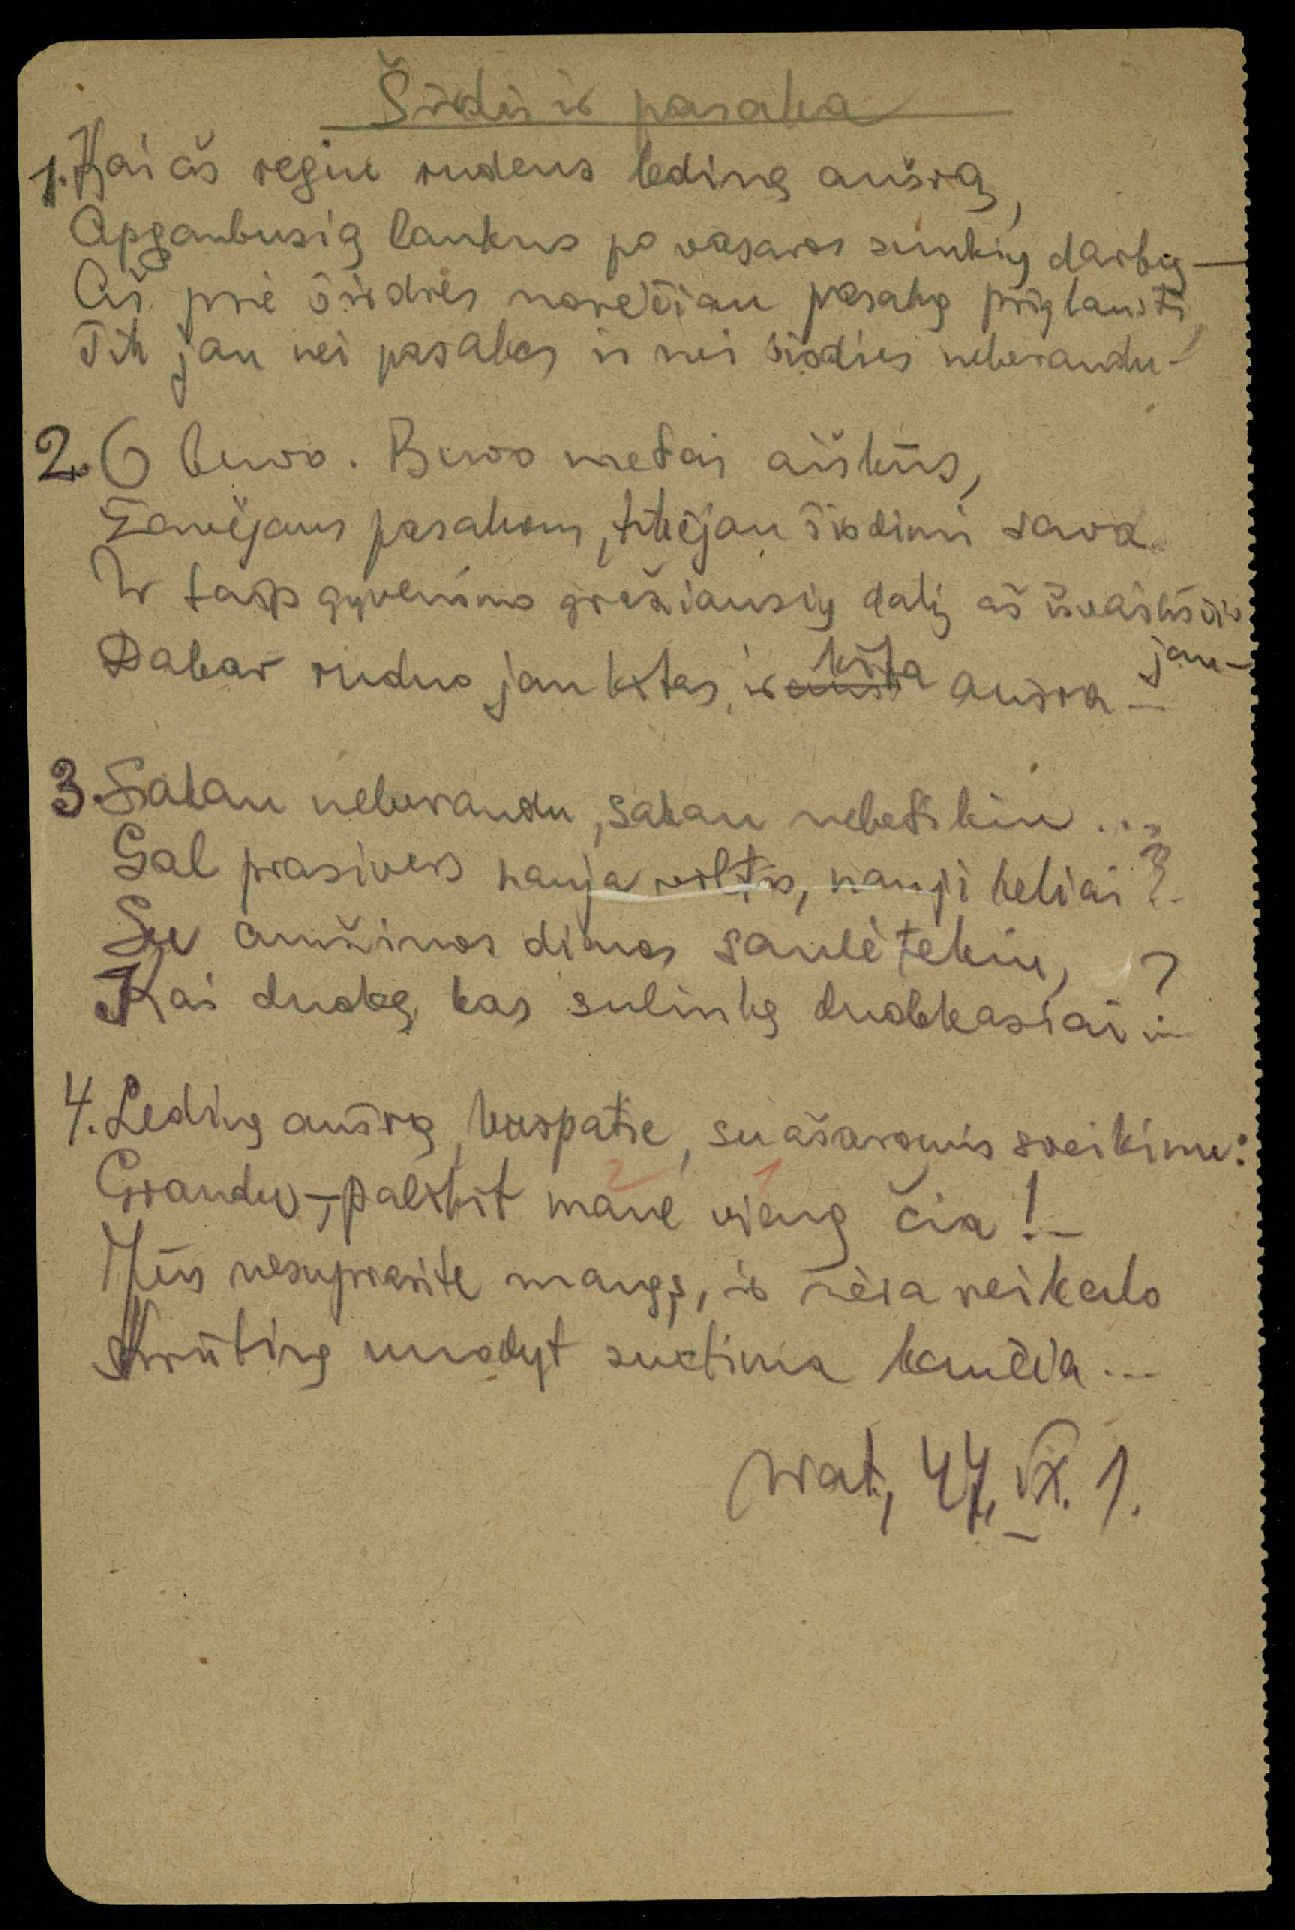 Širdis ir pasaka
1. Kai aš regiu rudens ledinę aušrą,
Apgaubusią laukus po vasaros sunkių darbų —
Aš prie širdies norėčiau pasaką priglausti,
Tik jau nei pasakos ir nei širdies neberandu —
2. O buvo. Buvo metai aiškūs,
Žavėjaus pasakom, tikėjau širdimi sava
Ir taip gyvenimo gražiausią dalį aš išvaikščio
jau —
Dabar ruduo jau kitas, ir kita aušra —
3. Sakau neberandu, sakau nebetikiu ...
Gal prasivers nauja viltis, nauji keliai?
Su amžinos dienos saulėtekiu,
Kai duobę kas sulinkę duobkasiai ... ?
4. Ledinę aušrą, viešpatie, su ašaromis sveikinu:
2 1
Graudu, — palikit mane vieną čia! —
Jūs nesuprasite manęs, ir nėra reikalo
Krūtinę nuodyt svetima kančia ...
Vrat, 47, IX. 1.